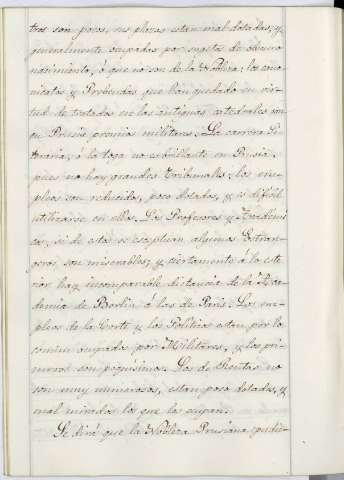 tros son pocos, sus plazas estan mal dotadas, y
generalmente ocupadas por sugetos de obscuro
nacimiento, ó que no son de la Nobleza: los cano-
nicatos y Prebendas que han quedado en vir-
tud de tratados en las antiguas catedrales son
en Prusia premios militares. La carrera Li-
teraria, ó la toga no es brillante en Prusia,
pues no hay grandes Tribunales; los em-
pleos son reducidos, poco dotados, y es dificil
utilizarse en ellos. Los Profesores y Academi-
cos, si de estos se exceptuan algunos Estran-
geros son miserables; y ciertamente á lo este-
rior hay incomparable distancia de la Aca-
demia de Berlin á las de Paris. Los em-
pleos de la Corte y los Politicos estan por lo
comun ocupados por Militares, y los pri-
meros son poquisimos. Los de Rentas no
son muy numerosos, estan poco dotados, y
mal mirados los que los ocupan.
Se dirá que la Nobleza Prusiana pudie-